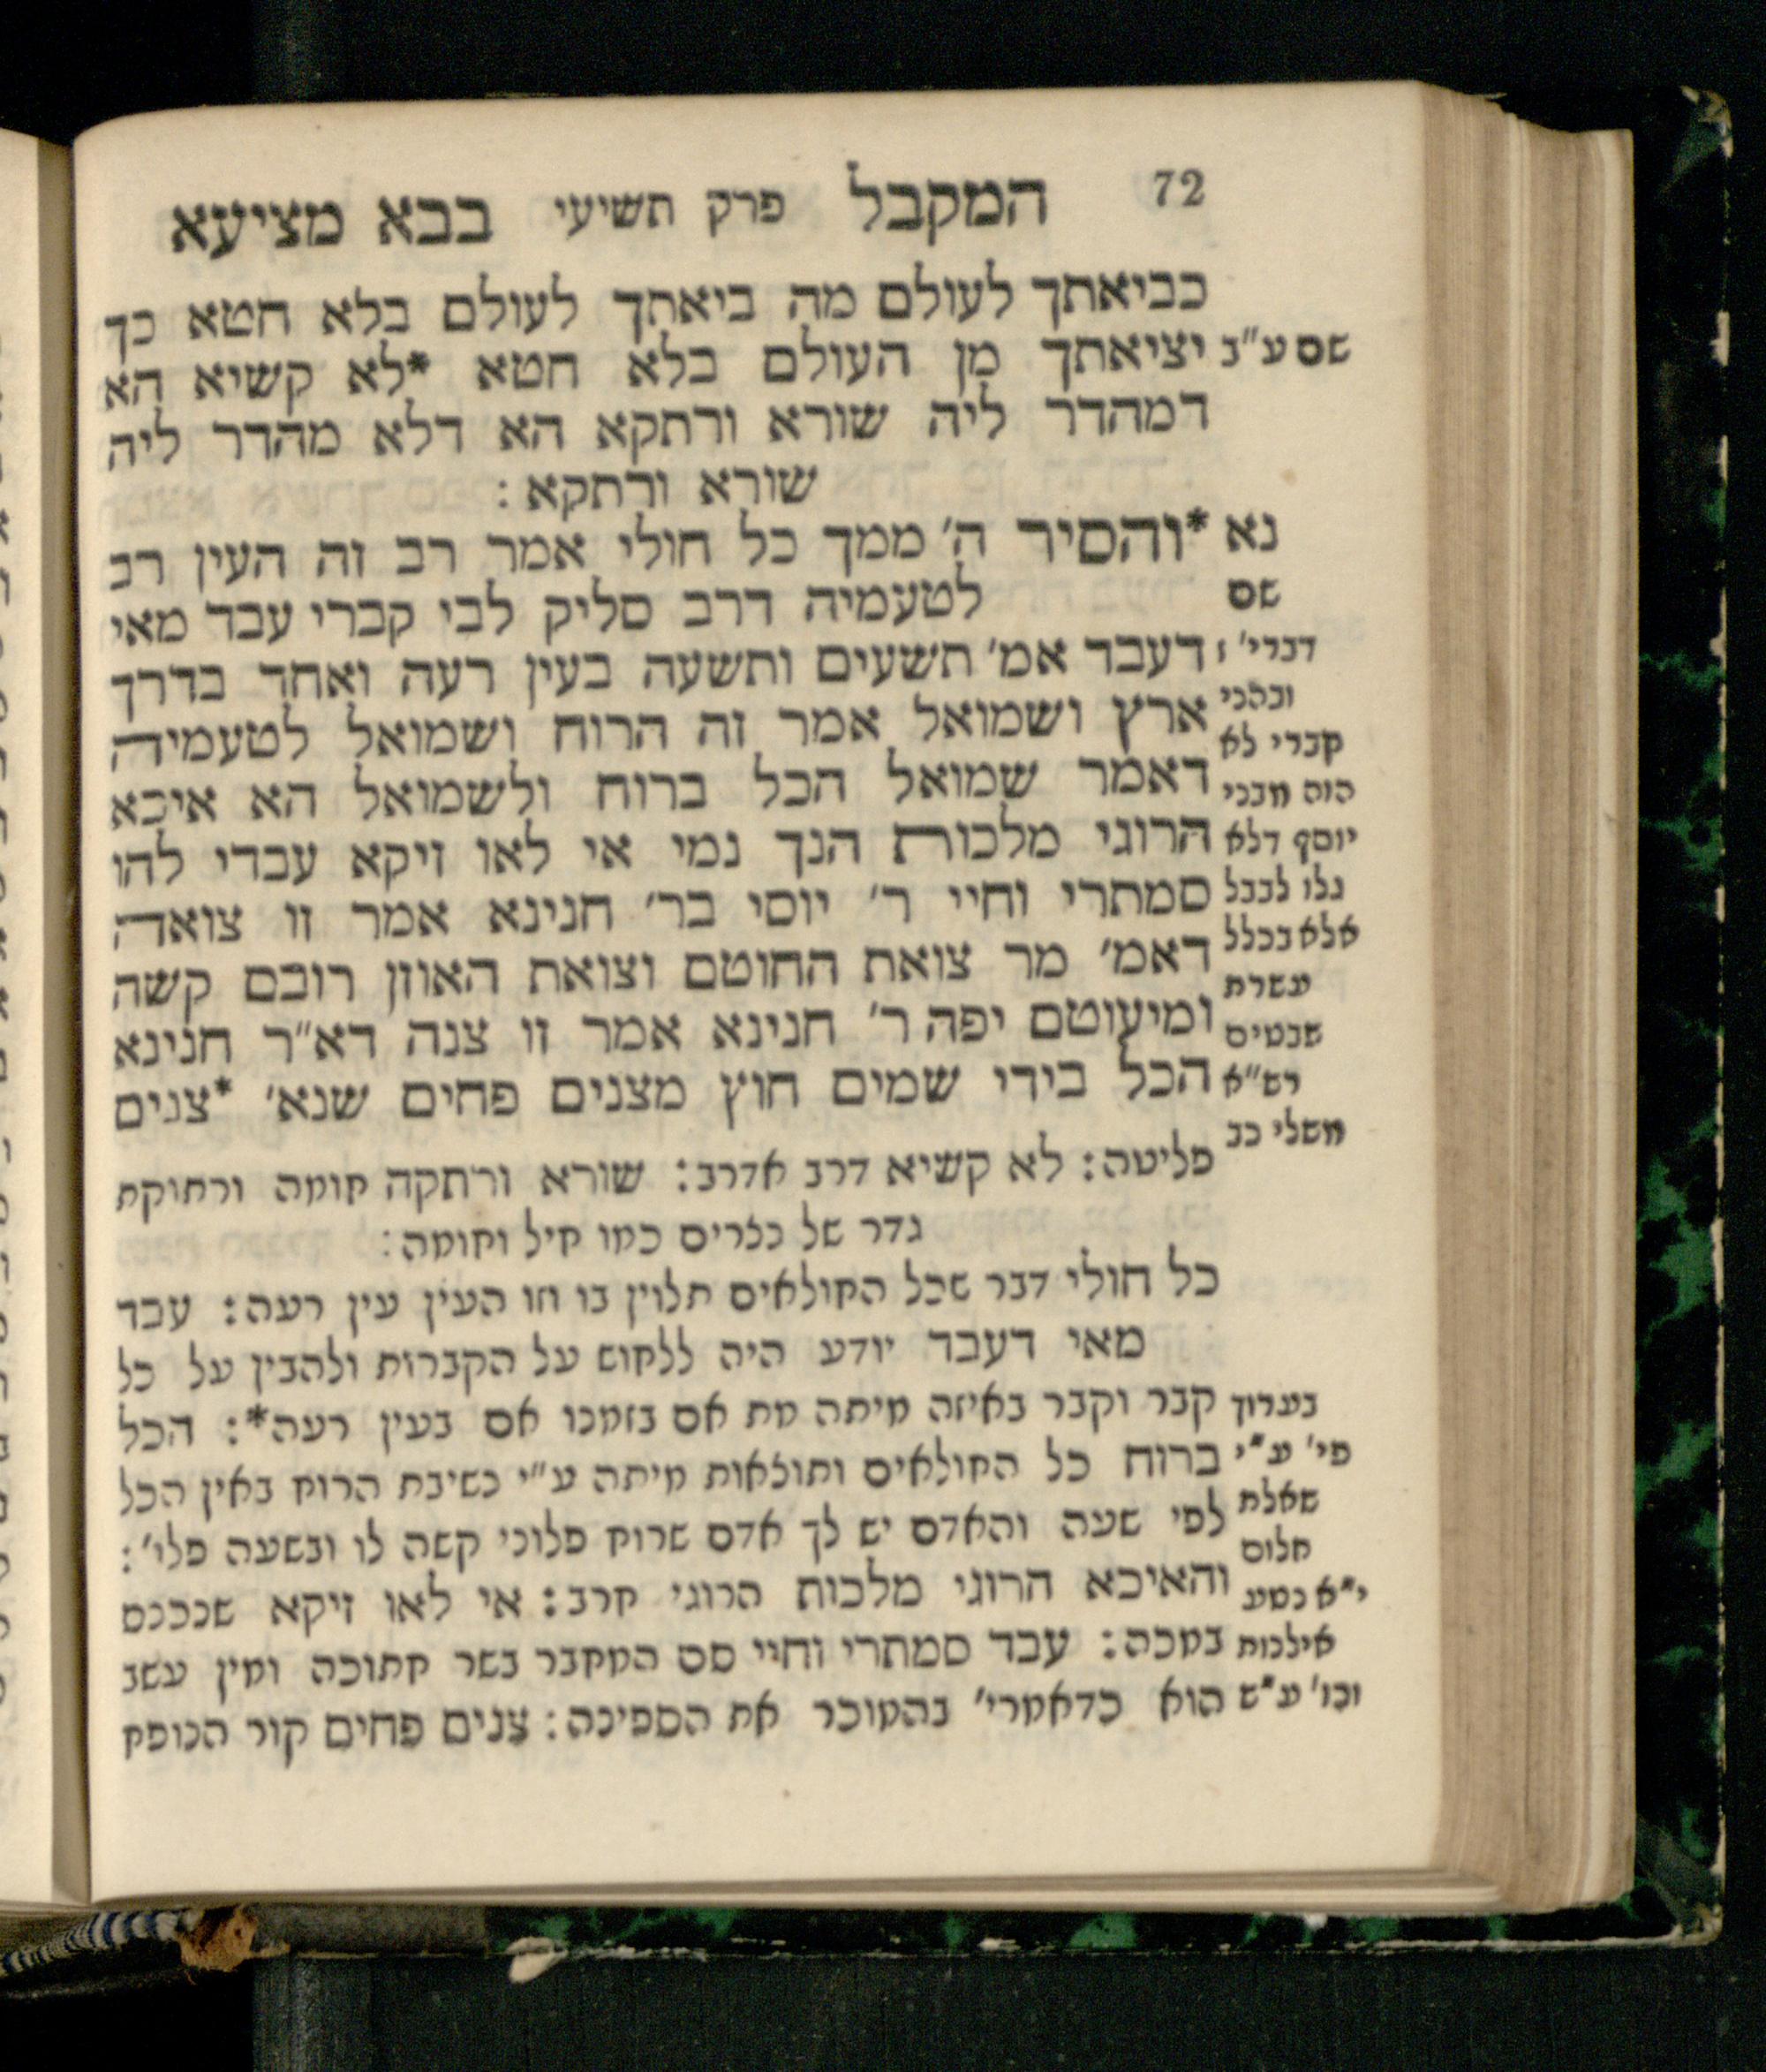 72 המקבל פרק תשיעי בבא מציעא
כביאתך לעולם מה ביאתך לעולם בלא חטא כך
יציאתך מן העולם בלא חטא *לא קשיא הא
דמהדר ליה שורא ורתקא הא דלא מהדר ליה
שורא ורתקא :
נא *והסיר ה׳ ממך כל חולי אמר רב זה העין רב
לטעמיה דרב סליק לבי קברי עבד מאי
דעבד אמ׳ תשעים ותשעה בעין רעה ואחד בדרך
ארץ ושמואל אמר זה הרוח ושמואל לטעמיה
דאמר שמואל הכל ברוח ולשמואל הא איכא
הרוגי מלכות הנך נמי אי לאו זיקא עבדי להו
סמתרי וחיי ר׳ יוסי בר׳ חנינא אמר זו צואה
דאמ׳ מר צואת החוטם וצואת האוזן רובם קשה
ומיעוטם יפה ר׳ חנינא אמר זו צנה דא״ר חנינא
הכל בידי שמים חוץ מצנים פחים שנא׳ *צנים
שם ע״ב
שם
דברי׳ ז
ובהכי
קברי לא
הוה מבני
יוסף דלא
גלו לבבל
אלא בכלל
עשרת
שבטים
רש״א
משלי כב
פליטה: לא קשיא דרב אדרב: שורא ורתקה חומה ורחוקת
גדר של בצרים כמו חיל וחומה:
כל חולי דבר שכל החולאים תלוין בו וזו העין עין רעה: עבד
מאי דעבד יודע היה ללחוש על הקברות ולהבין על כל
קבר וקבר באיזה מיתה מת אם בזמנו אם בעין רעה*: הכל
ברוח כל החולאים ותוצאות מיתה ע״י נשיבת הרוח באין הכל
לפי שעה והאדם יש לך אדם שרוח פלוני קשה לו ובשעה פלו׳:
והאיכא הרוגי מלכות הרוגי חרב: אי לאו זיקא שנכנס
במכה: עבד סמתרי וחיי סם המחבר בשר חתוכה ומין עשב
הוא כדאמרי׳ בהמוכר את הספינה: צנים פחים קור הנופח
בערוך
פי׳ ע״י
שאלת
חלום
י״א נטע
אילנות
וכו׳ ע״ש